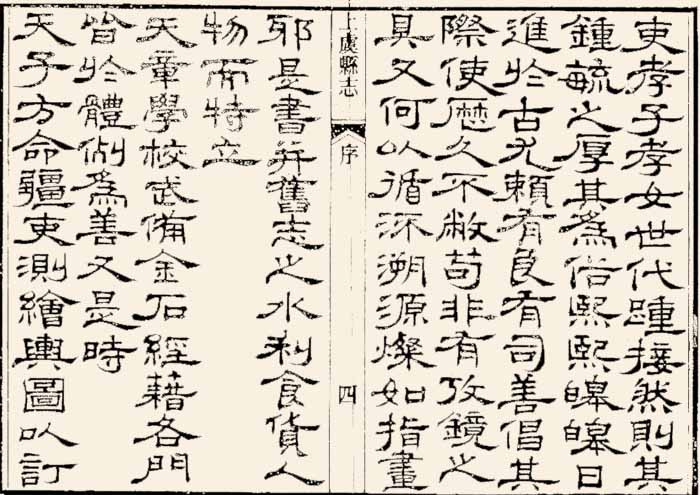 吏孝子孝女世代踵接然則其
鍾毓之厚其爲俗熙熙皞皞日
進於古尤賴有良有司善倡其
際使歷久不敝苟非有攷鏡之
具又何以循沠溯源燦如指畫
上虞縣志 序 四
邪是書并舊志之水利食貨人
物而特立
天章學校武備金石經藉各門
皆於體例爲善又是時
天子方命疆吏測繪輿圖以訂